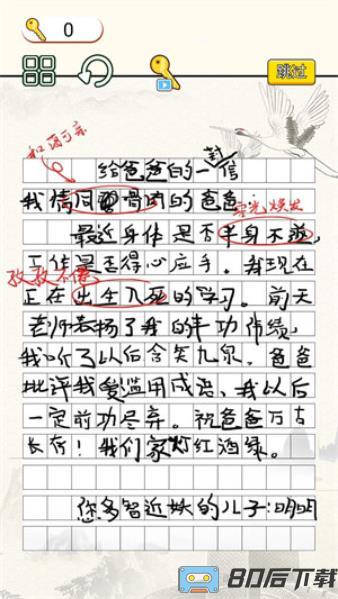 0
跳过
和蔼可亲
给爸爸的一封信
我情同骨肉的爸爸:
容光焕发
最近身体是否半身不遂,
工作是否得心应手。我现在
孜孜不倦
正在出生入死的学习。前天
老师表扬了我的丰功伟绩,
我听了以后含笑九泉。爸爸
批评我爱滥用成语、我以后
一定前功尽弃。祝爸爸万古
长存!我们家灯红酒绿。
您多智近妖的儿子:明明
80后下载